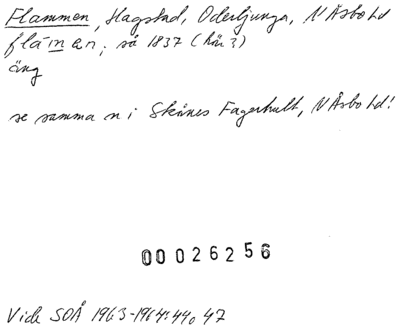 Flammen, Hagstad, Oderljunga, N Åsbo hd
flámen, så 1837 (här 3)
äng
se samma n i Skånes Fagerhult, N Åsbo hd!
00026256
Vide SOÅ 1963-1964: 44o 47